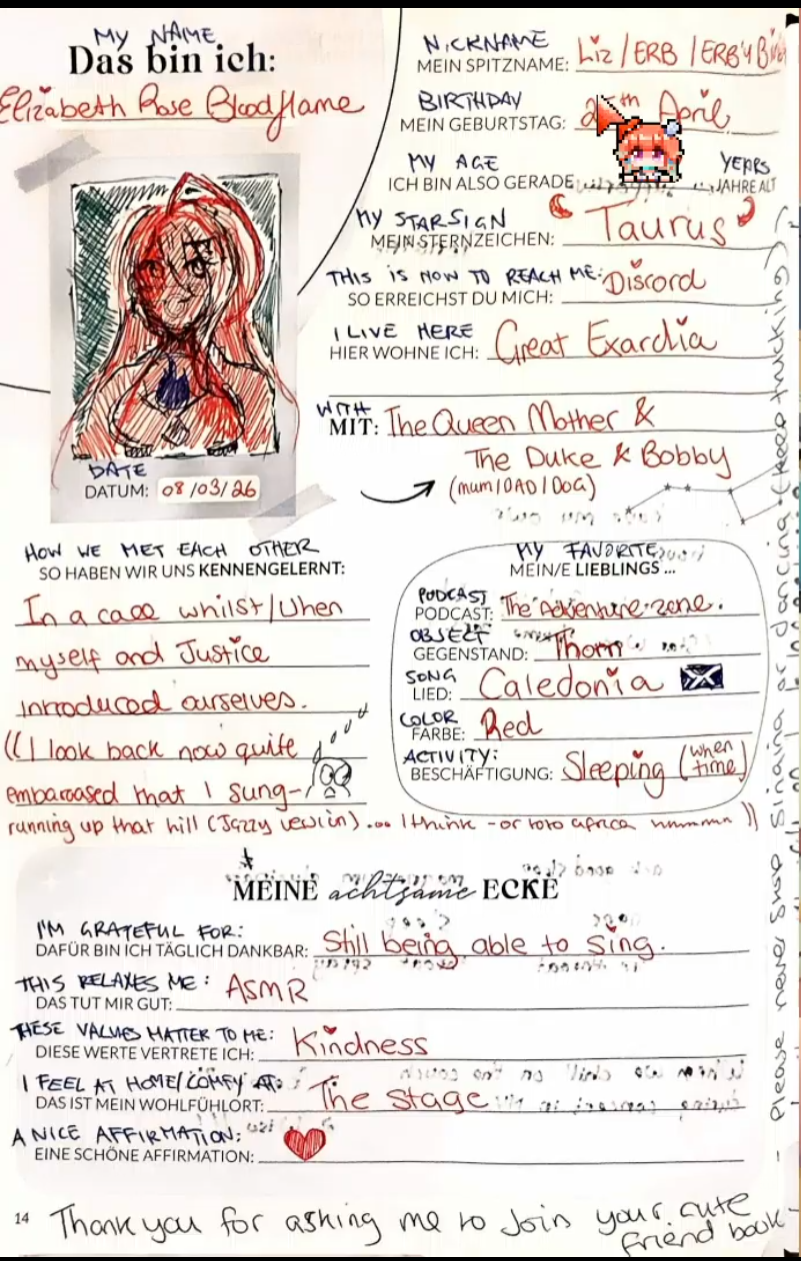 MY NAME
Das bin ich:
Elizabeth Rose Bloodflame
DATE
DATUM: 08/03/26
NICKNAME
MEIN SPITZNAME: Liz / ERB / ERB'y
BIRTHDAY
MEIN GEBURTSTAG: April
MY AGE YEARS
ICH BIN ALSO GERADE JAHRE ALT
MY STARSIGN
MEIN STERNZEICHEN: Taurus
THIS IS HOW TO REACH ME:
SO ERREICHST DU MICH: Discord
I LIVE HERE
HIER WOHNE ICH: Great Exardia
WITH
MIT: The Queen Mother &
The Duke & Bobby
(mum/DAD/DOG)
HOW WE MET EACH OTHER
SO HABEN WIR UNS KENNENGELERNT:
In a call whilst/when
myself and Justice
introduced ourselves.
((I look back now quite
embaroased that I sung-
running up that hill (Jazzy version) ... I think - or toto africa hmmmm ))
MY FAVORITE
MEIN/E LIEBLINGS ...
PODCAST
PODCAST: The Adventure zone.
OBJECT
GEGENSTAND: Thorn
SONG
LIED: Caledonia
COLOR
FARBE: Red
ACTIVITY:
BESCHÄFTIGUNG: Sleeping (when time)
MEINE achtsame ECKE
I'M GRATEFUL FOR:
DAFÜR BIN ICH TÄGLICH DANKBAR: Still being able to sing.
THIS RELAXES ME:
DAS TUT MIR GUT: ASMR
THESE VALUES MATTER TO ME:
DIESE WERTE VERTRETE ICH: Kindness
I FEEL AT HOME/COMFY AT:
DAS IST MEIN WOHLFÜHLORT: The Stage
A NICE AFFIRMATION:
EINE SCHÖNE AFFIRMATION:
- Please never stop singing or dancing (keep trucking)
14
Thank you for asking me to join your cute
friend book-